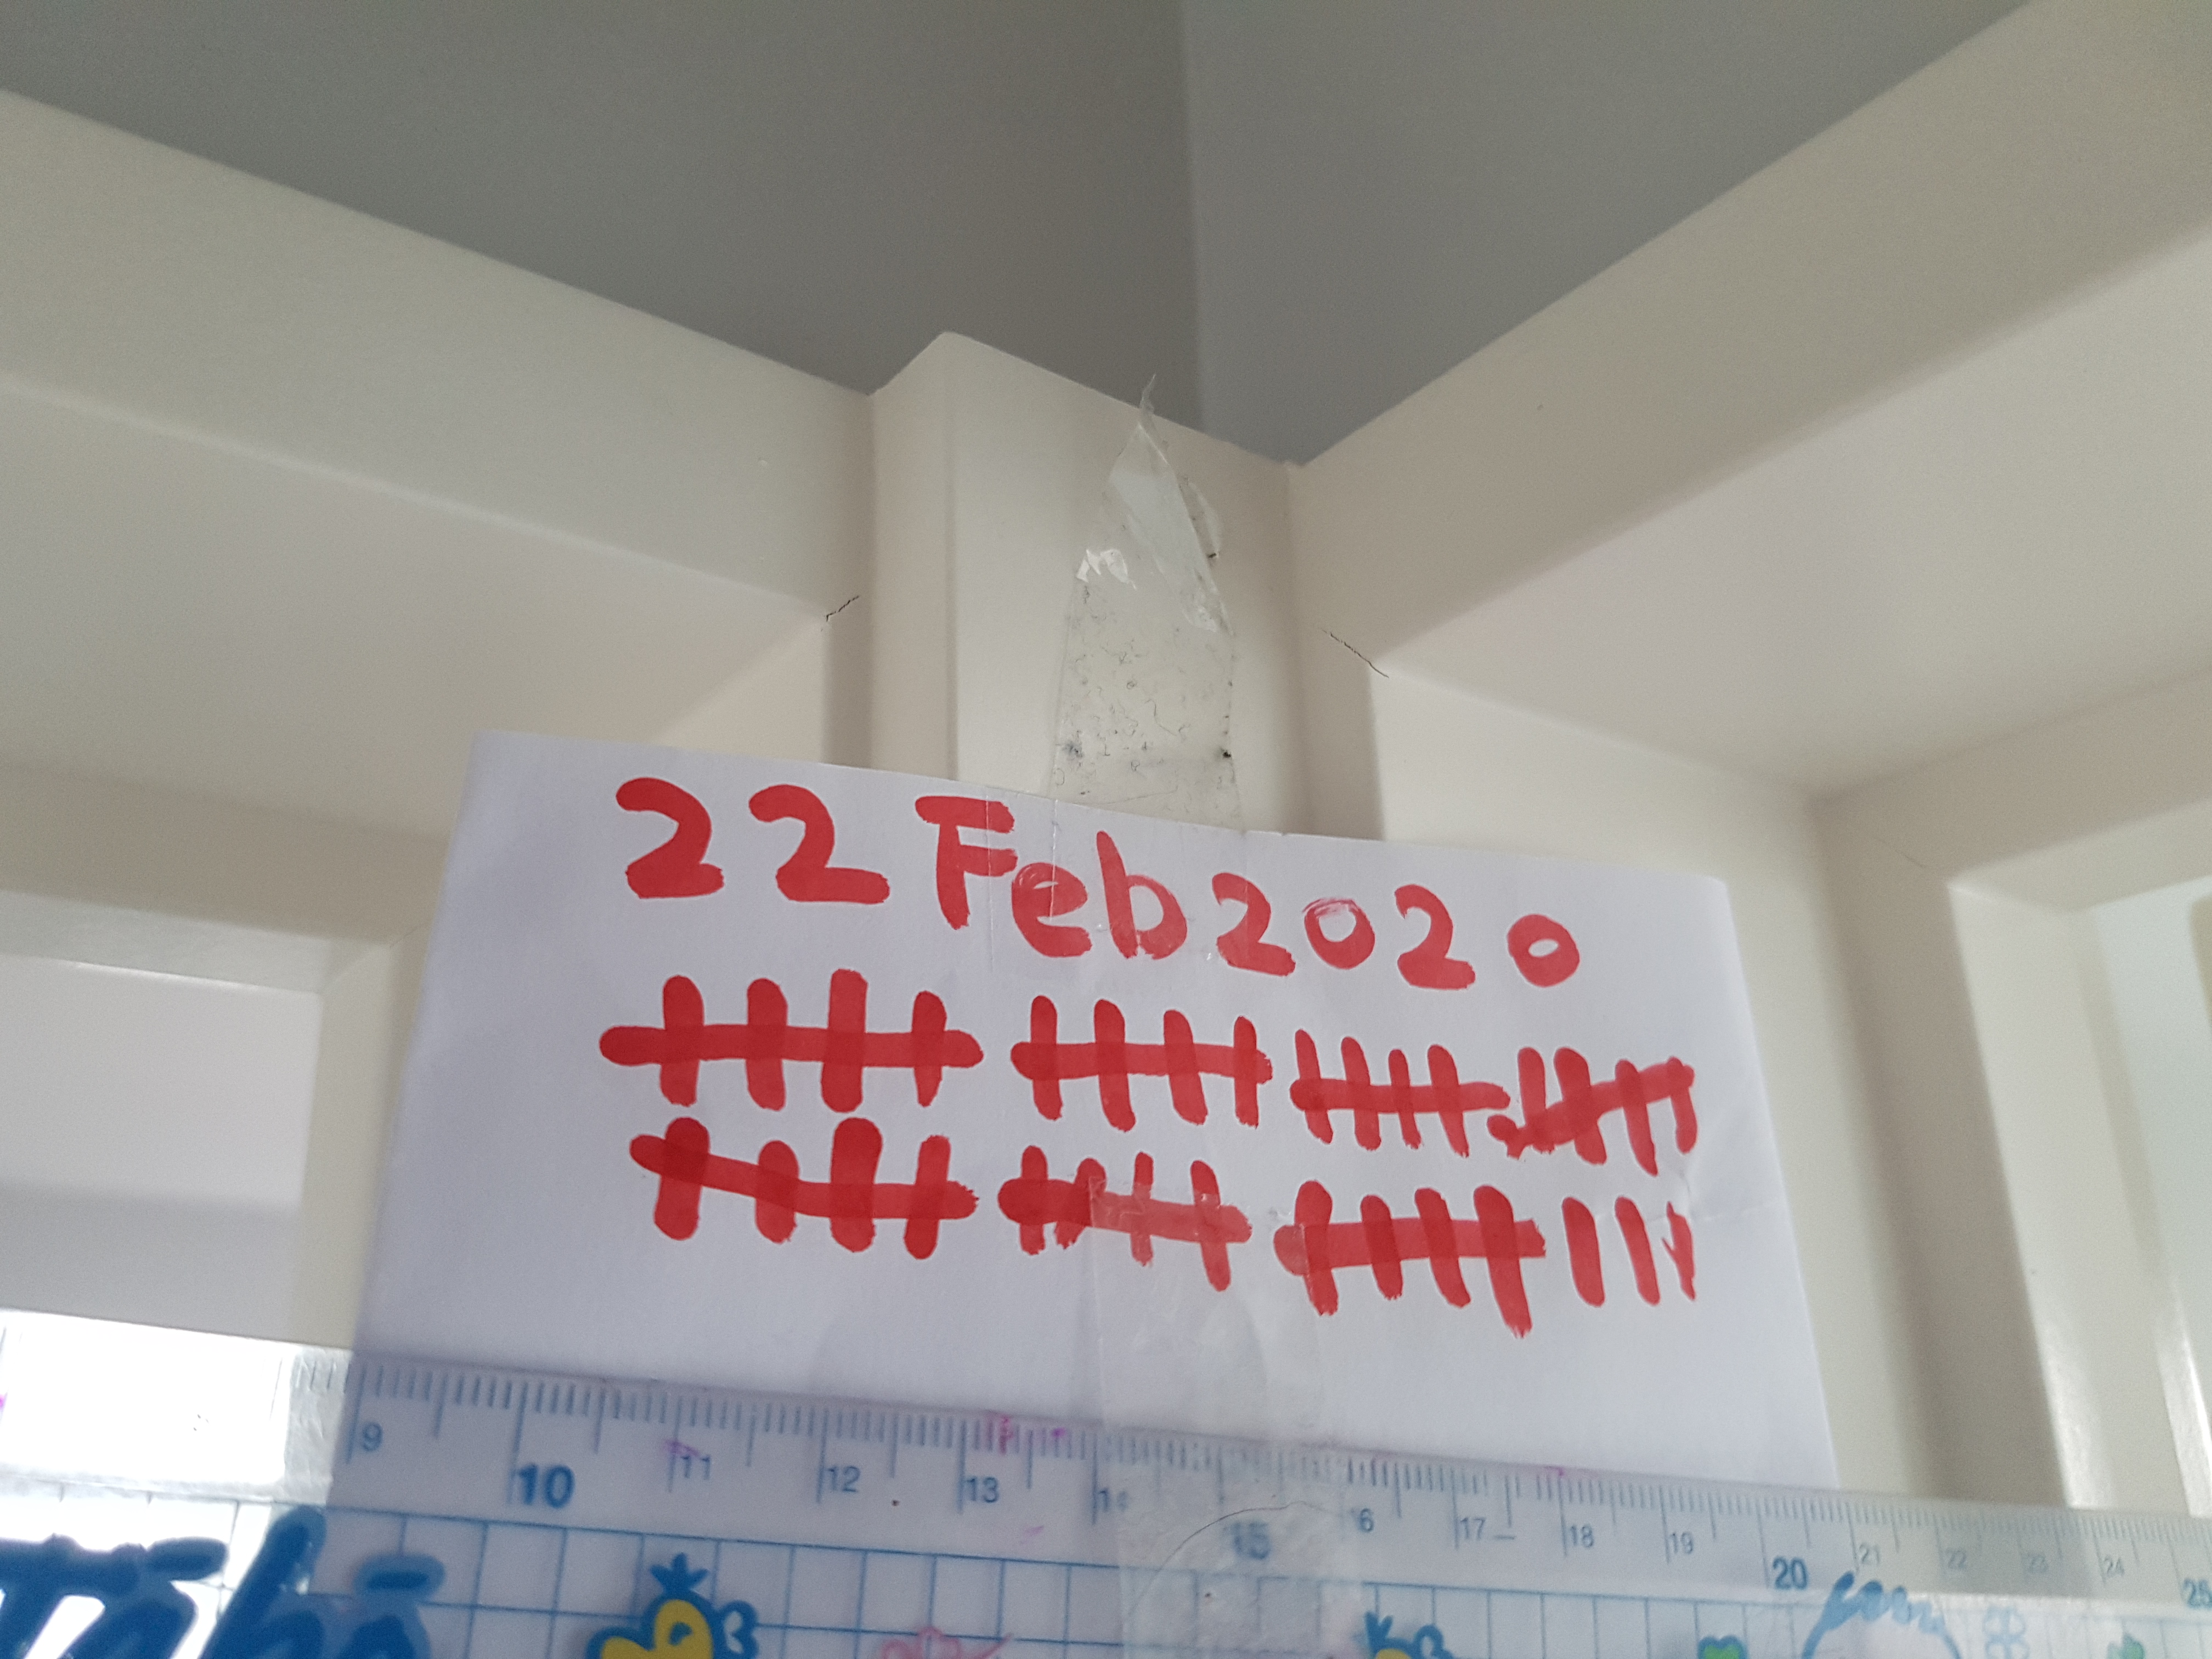 22 Feb 2020
9 10 11 12 13 14 15 16 17 18 19 20 21 22 23 24 25